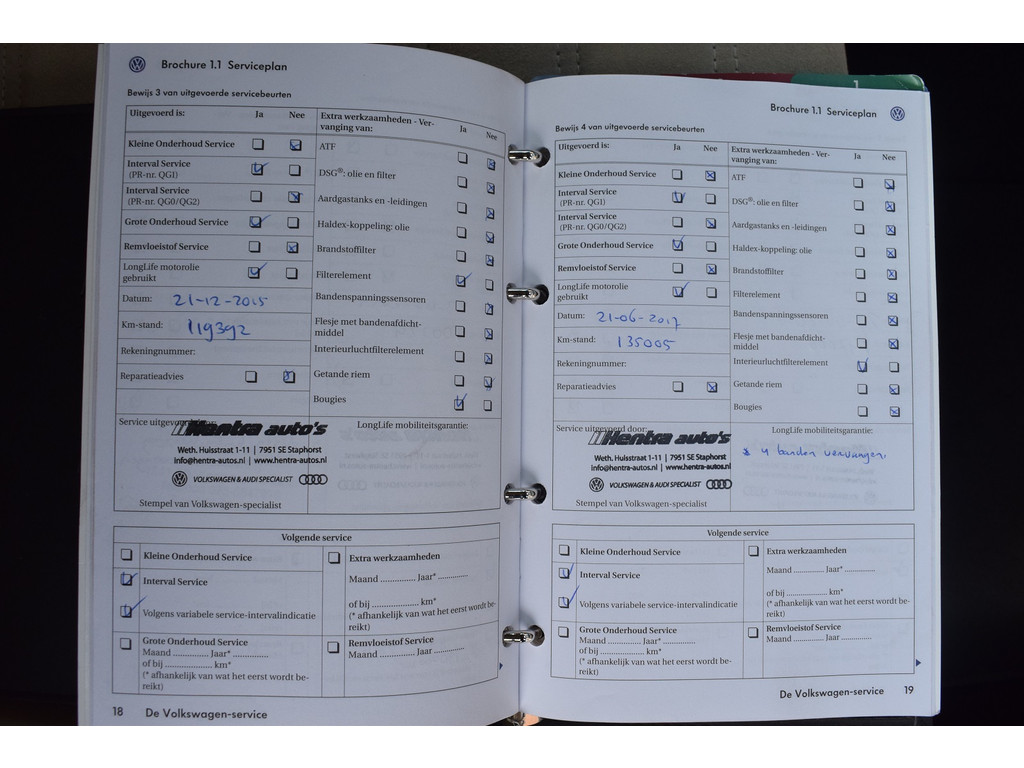 Brochure 1.1 Serviceplan
Bewijs 3 van uitgevoerde servicebeurten
Uitgevoerd is: Ja Nee
Kleine Onderhoud Service
Interval Service
(PR-nr. QG1)
Interval Service
(PR-nr. QG0/QG2)
Grote Onderhoud Service
Remvloeistof Service
LongLife motorolie
gebruikt
Datum: 21-12-2015
Km-stand: 119392
Rekeningnummer:
Reparatieadvies
Extra werkzaamheden - Ver-
vanging van: Ja Nee
ATF
DSG®: olie en filter
Aardgastanks en -leidingen
Haldex-koppeling: olie
Brandstoffilter
Filterelement
Bandenspanningssensoren
Flesje met bandenafdicht-
middel
Interieurluchtfilterelement
Getande riem
Bougies
Service uitgevoerd door:
Hentra auto's
Weth. Huisstraat 1-11 | 7951 SE Staphorst
info@hentra-autos.nl | www.hentra-autos.nl
VOLKSWAGEN & AUDI SPECIALIST
Stempel van Volkswagen-specialist
LongLife mobiliteitsgarantie:
Volgende service
Kleine Onderhoud Service
Interval Service
Volgens variabele service-intervalindicatie
Grote Onderhoud Service
Maand .............. Jaar* ..............
of bij .................... km*
(* afhankelijk van wat het eerst wordt be-
reikt)
Extra werkzaamheden
Maand .............. Jaar* ..............
of bij .................... km*
(* afhankelijk van wat het eerst wordt be-
reikt)
Remvloeistof Service
Maand .............. Jaar ..............
18 De Volkswagen-service
1
Brochure 1.1 Serviceplan
Bewijs 4 van uitgevoerde servicebeurten
Uitgevoerd is: Ja Nee
Kleine Onderhoud Service
Interval Service
(PR-nr. QG1)
Interval Service
(PR-nr. QG0/QG2)
Grote Onderhoud Service
Remvloeistof Service
LongLife motorolie
gebruikt
Datum: 21-06-2017
Km-stand: 135005
Rekeningnummer:
Reparatieadvies
Extra werkzaamheden - Ver-
vanging van: Ja Nee
ATF
DSG®: olie en filter
Aardgastanks en -leidingen
Haldex-koppeling: olie
Brandstoffilter
Filterelement
Bandenspanningssensoren
Flesje met bandenafdicht-
middel
Interieurluchtfilterelement
Getande riem
Bougies
Service uitgevoerd door:
Hentra auto's
Weth. Huisstraat 1-11 | 7951 SE Staphorst
info@hentra-autos.nl | www.hentra-autos.nl
VOLKSWAGEN & AUDI SPECIALIST
Stempel van Volkswagen-specialist
LongLife mobiliteitsgarantie:
* 4 banden vervangen.
Volgende service
Kleine Onderhoud Service
Interval Service
Volgens variabele service-intervalindicatie
Grote Onderhoud Service
Maand .............. Jaar* ..............
of bij .................... km*
(* afhankelijk van wat het eerst wordt be-
reikt)
Extra werkzaamheden
Maand .............. Jaar* ..............
of bij .................... km*
(* afhankelijk van wat het eerst wordt be-
reikt)
Remvloeistof Service
Maand .............. Jaar ..............
De Volkswagen-service 19